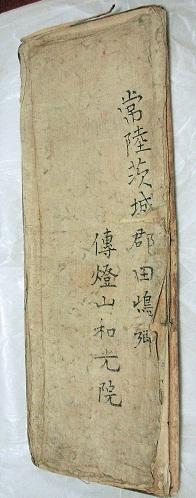 常陸茨城郡田嶋郷
傳燈山和光院